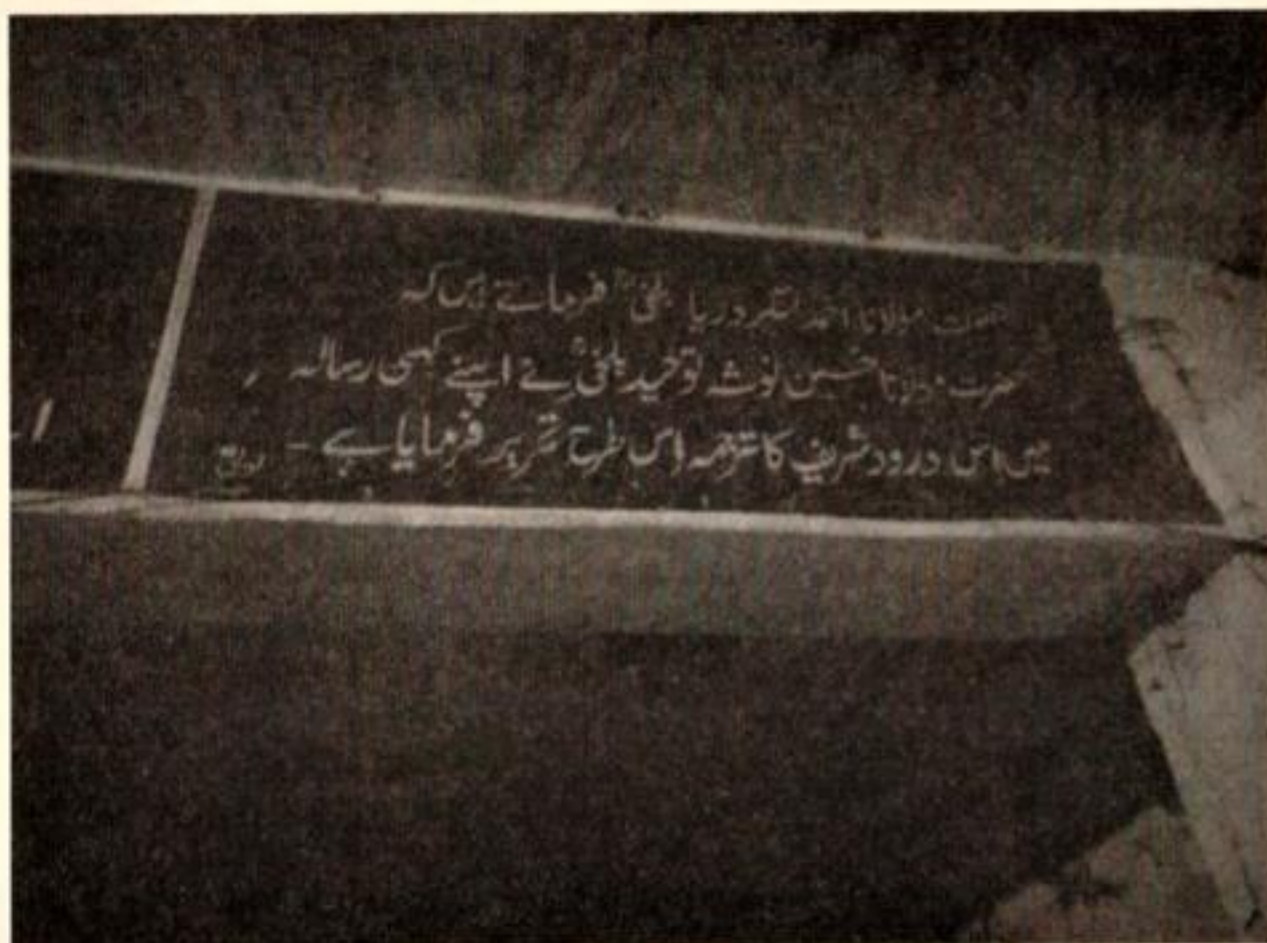 حضرت مولانا احمد لنگر دریا بلخیؒ فرماتے ہیں کہ
حضرت مولانا حسین نوشہ توحید بلخیؒ نے اپنے کسی رسالہ
میں اس درود شریف کا ترجمہ اس طرح تحریر فرمایا ہے -